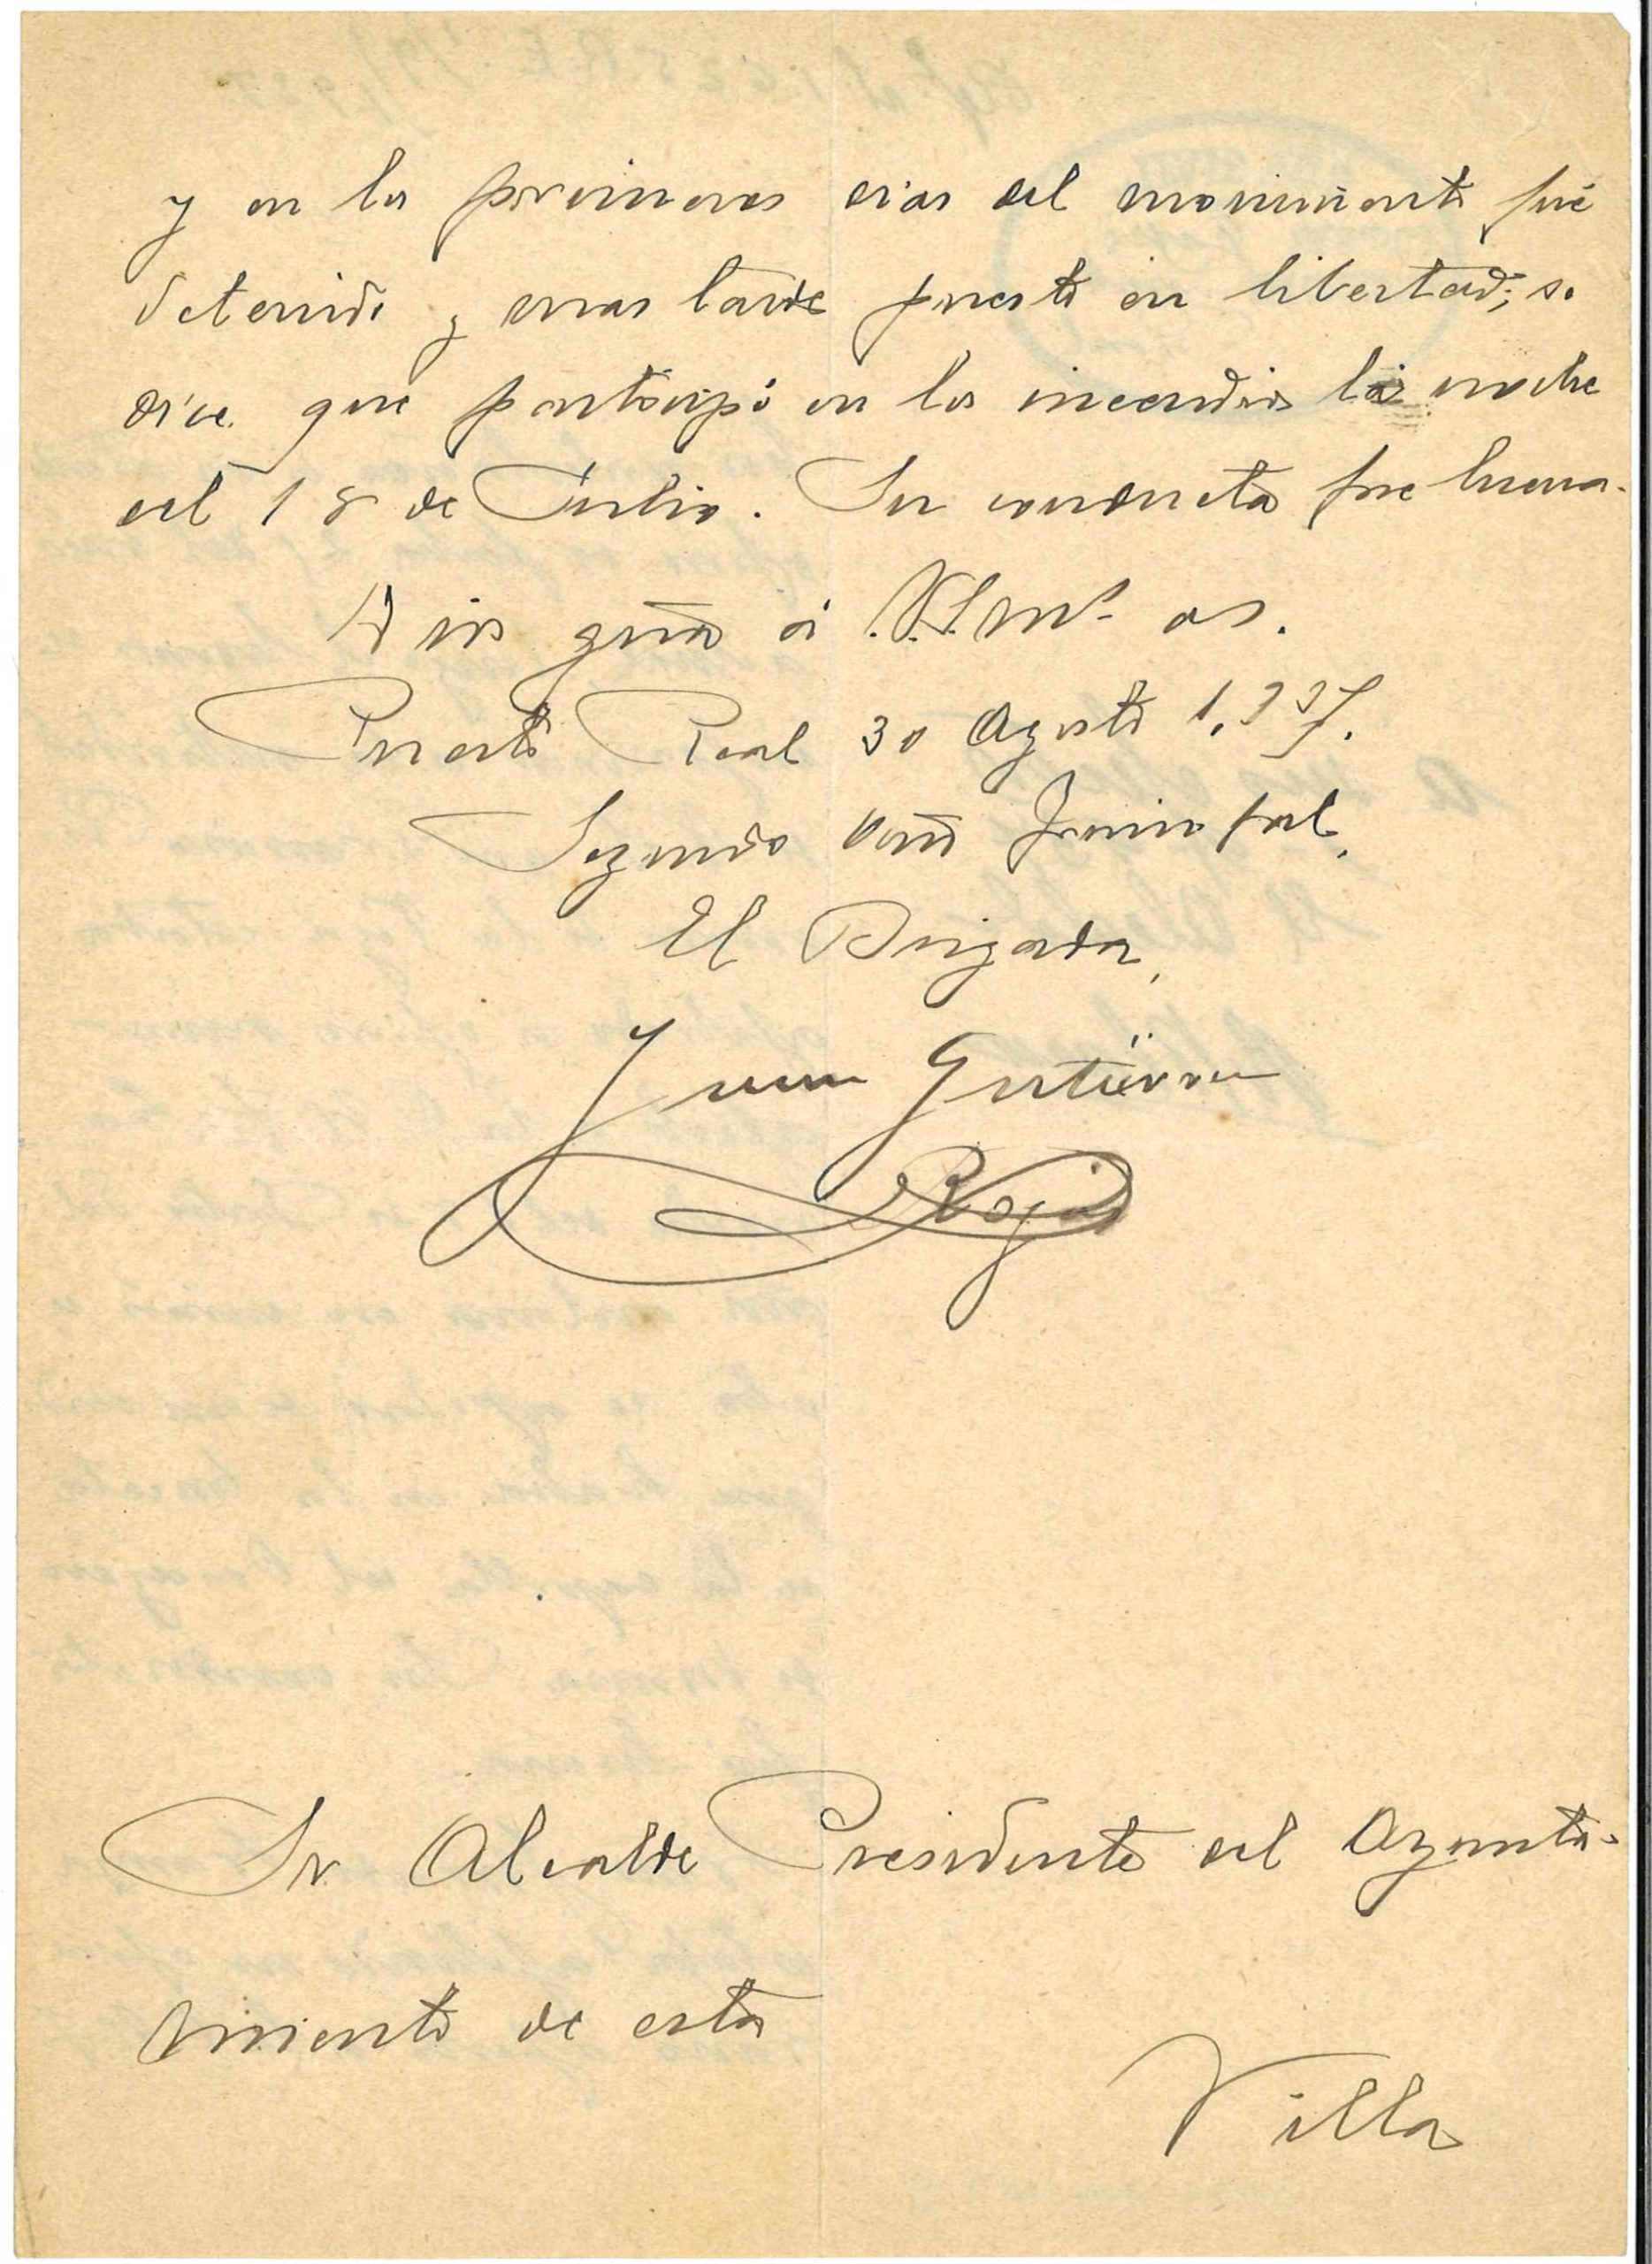 y en los primeros dias del movimiento fué
detenido y mas tarde puesto en libertad; se
dice que participó en los incendios la noche
del 18 de Julio. Su conducta fue buena.
Dios gñā á V. S. mˢ as.
Puerto Real 30 Agosto 1.937.
Segundo Año Triunfal,
El Brigada,
Juan Gutiérrez
Rojas
Sr Alcalde Presidente del Ayunta-
miento de esta
Villa